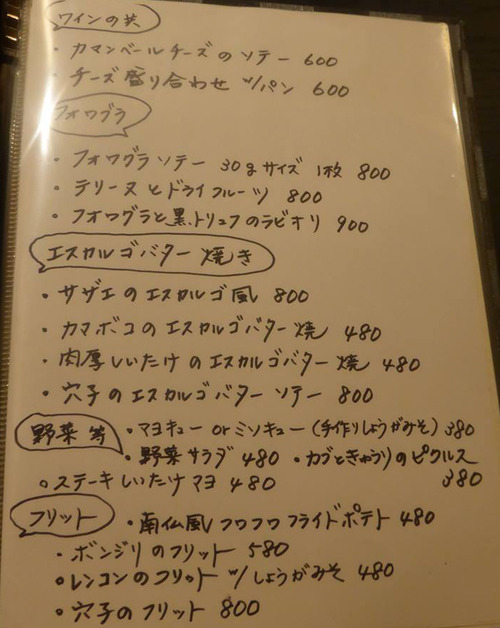 ワインの共
・カマンベールチーズのソテー 600
・チーズ盛り合わせ ツ/パン 600
フォワグラ
・フォワグラソテー 30gサイズ 1枚 800
・テリーヌとドライフルーツ 800
・フォワグラと黒トリュフのラビオリ 900
エスカルゴバター焼き
・サザエのエスカルゴ風 800
・カマボコのエスカルゴバター焼 480
・肉厚しいたけのエスカルゴバター焼 480
・穴子のエスカルゴバターソテー 800
野菜等 ・マヨキュー or ミソキュー(手作りしょうがみそ) 380
・野菜サラダ 480 ・カブときゅうりのピクルス 380
・ステーキしいたけマヨ 480
フリット ・南仏風フワフワフライドポテト 480
・ボンジリのフリット 580
・レンコンのフリット ツ/しょうがみそ 480
・穴子のフリット 800